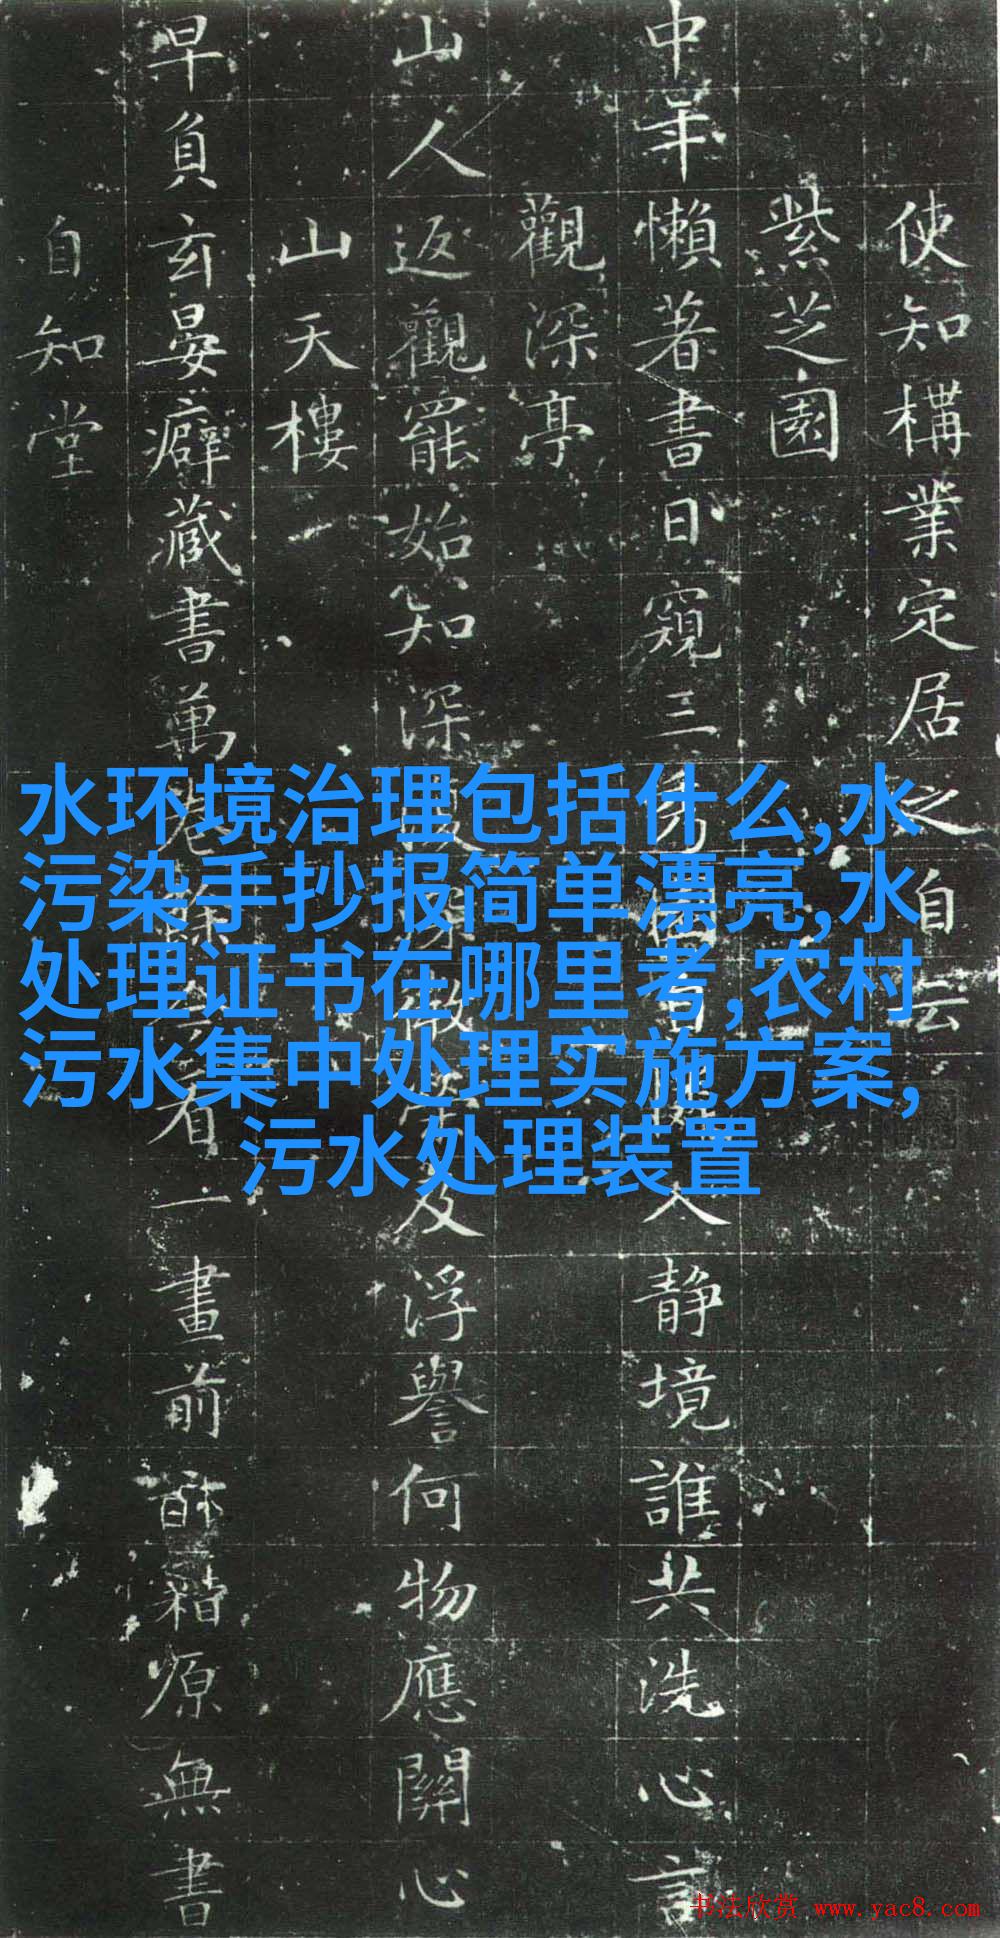 使知構業定居之自云
紫芝園
中年懶著書日窺三易人靜境誰共洗心言
觀深亭
山人返觀罷始知深及浮譽何物應關心
山天樓
早負玄晏癖藏書萬看一畫前籍原無書
自知堂
水环境治理包括什么,水
污染手抄报简单漂亮,水
处理证书在哪里考,农村
污水集中处理实施方案,
污水处理装置
书法欣赏 www.yac8.com